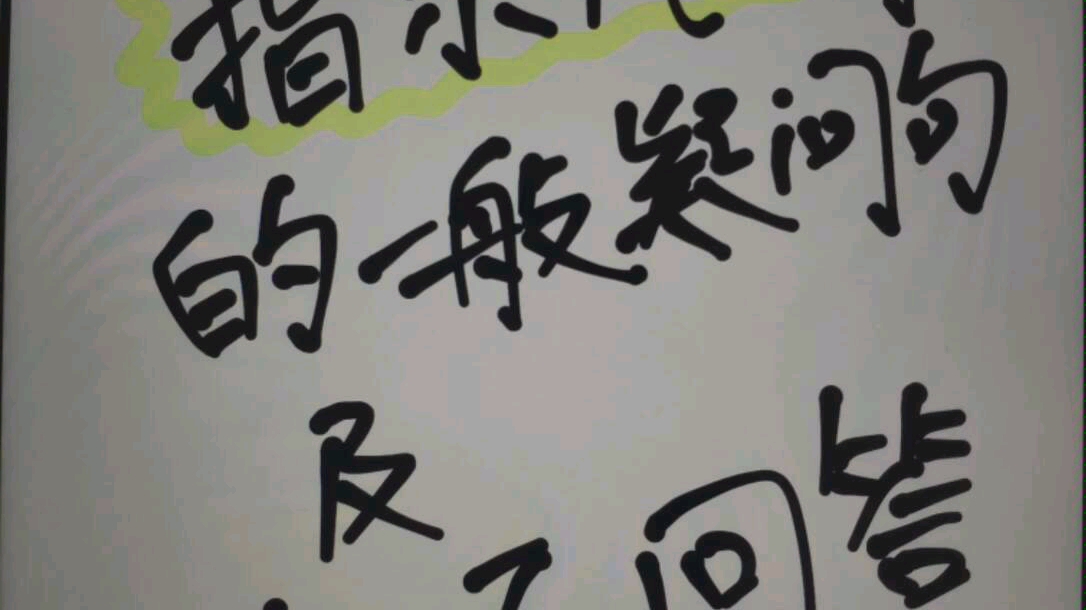 指示
的一般疑问句
及
回答